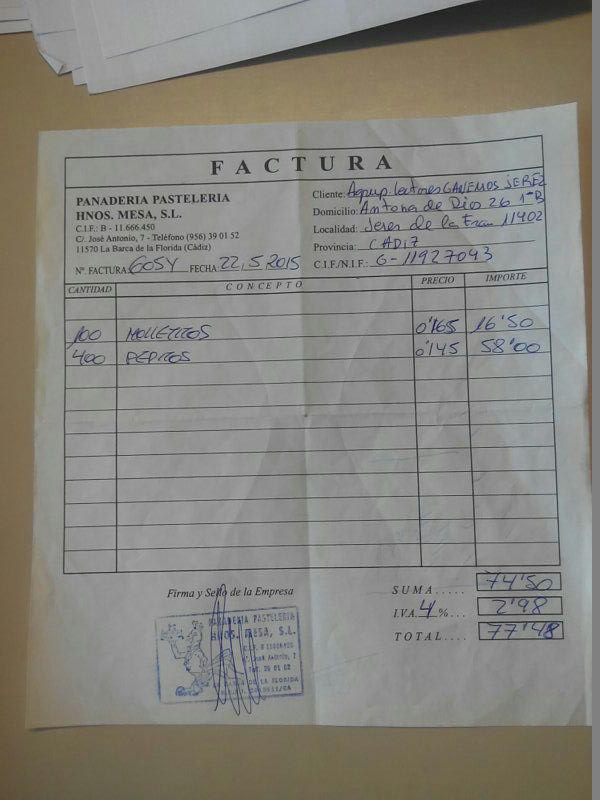 FACTURA
PANADERIA PASTELERIA
HNOS. MESA, S.L.
C.I.F.: B - 11.666.450
C/. José Antonio, 7 - Teléfono (956) 39 01 52
11570 La Barca de la Florida (Cádiz)
Nº. FACTURA: GOSY FECHA: 22, 5, 2015
Cliente: Agrup. lectores GANEMOS JEREZ
Domicilio: Antona de Dios 26 1º B
Localidad: Jerez de la Fra 11402
Provincia: CADIZ
C.I.F./N.I.F.: G-11927043
CANTIDAD CONCEPTO PRECIO IMPORTE
100 MOLLETITOS 0'165 16'50
400 PEPITOS 0'145 58'00
Firma y Sello de la Empresa
SUMA..... 74'50
I.V.A. 4 %... 2'98
TOTAL.... 77'48
PANADERIA PASTELERIA
HNOS. MESA, S.L.